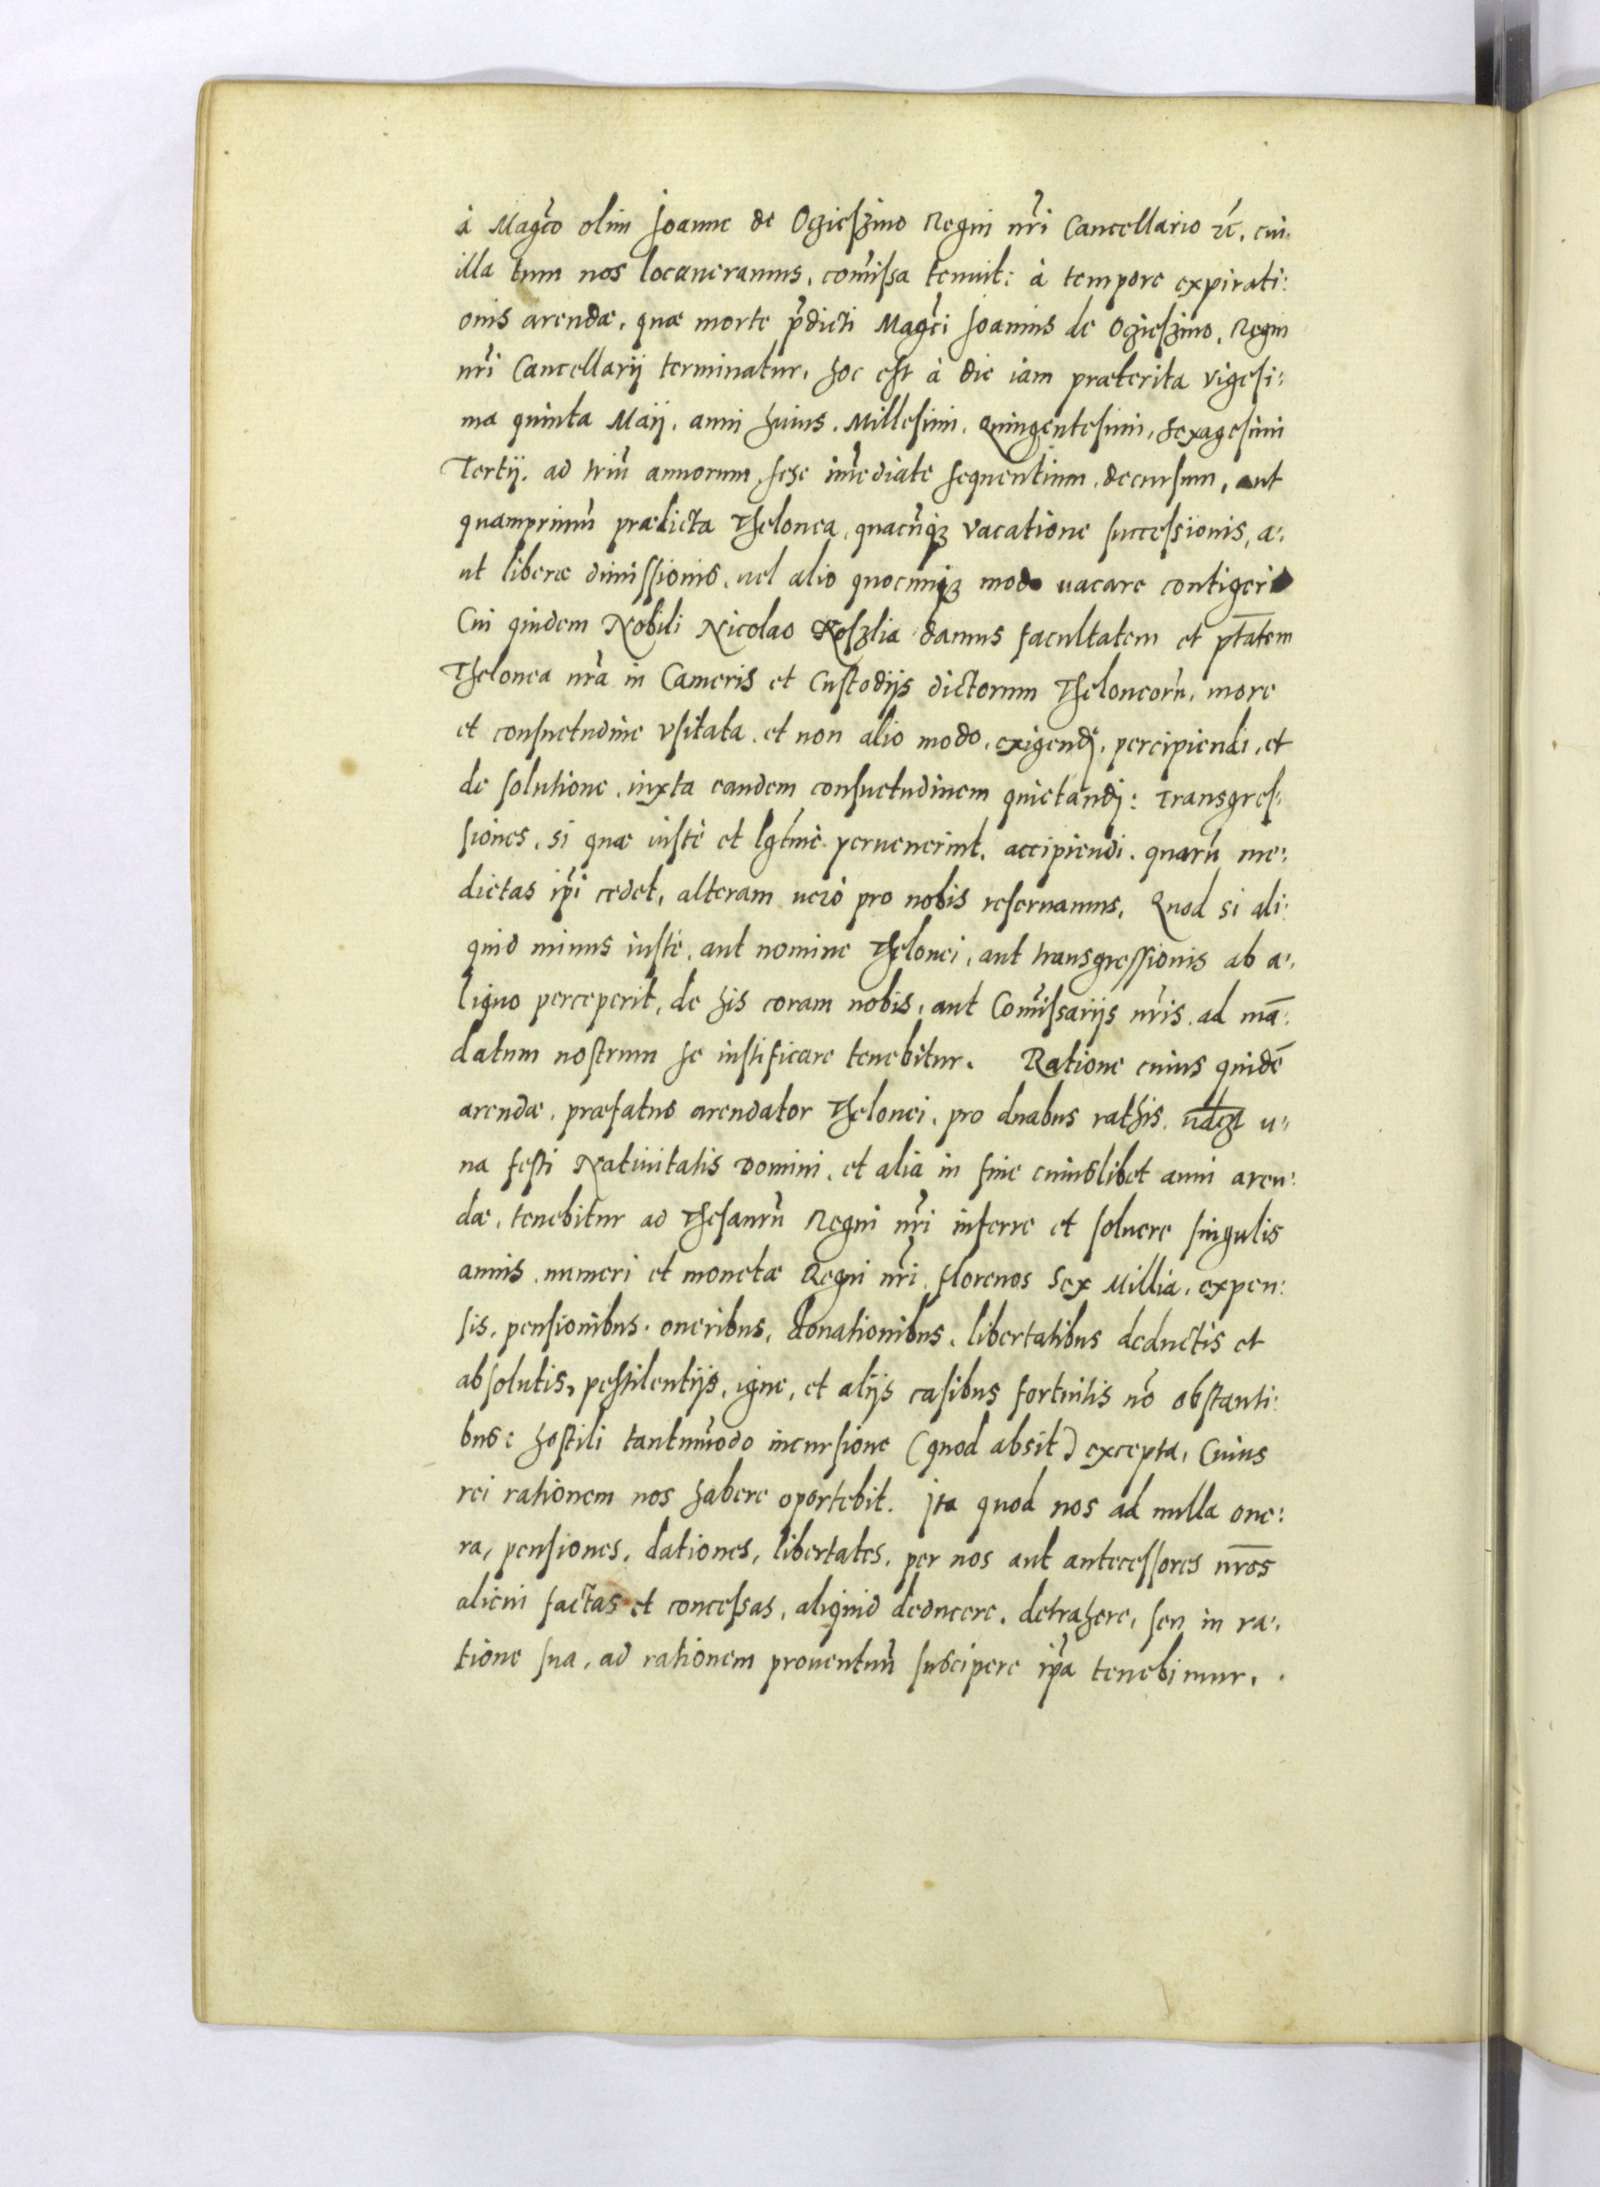 à Mag̃co olim Joanne de Oczieszino Regni nr̃i Cancellario ꝛc̃. cui
illa tum nos locaueramus, com̃issa tenuit: à tempore expirati:
onis arendæ, quæ morte p̃dicti Mag̃ci Joannis de Oczieszino, Regni
nr̃i Cancellarij terminatur, hoc est à die iam præterita vigesi:
ma quinta Maij. anni huius. Millesimi. Quingentesimi, Sexagesimi
Tertij. ad triũ annorum, sese im̃ediate sequentium, decursum, aut
quamprimũ prædicta Thelonea, quacũq₃ vacatione successionis, a:
ut liberæ dimissionis, uel alio quocunq₃ modo uacare contigerit
Cui quidem Nobili Nicolao Koszlia damus facultatem et pt̃atem
Thelonea nr̃a in Cameris et Custodijs dictorum Theloneorũ, more
et consuetudine vsitata, et non alio modo, exigendj, percipiendi, et
de solutione, iuxta eandem consuetudinem quietandj: Transgres:
siones, si quæ iustè et lgt̃imè peruenerint, accipiendi, quarũ me:
dietas ip̃i cedet, alteram uerò pro nobis reseruamus, Quod si ali:
quid minus iustè, aut nomine Thelonei, aut transgressionis ab a:
liquo perceperit, de his coram nobis, aut Com̃issarijs nr̃is, ad mã:
datum nostrum se iustificare tenebitur. Ratione cuius quidẽ
arendæ, præfatus arendator Thelonei, pro duabus rathis, u:
na festi Natiuitatis Domini, et alia in fine cuiuslibet anni aren:
dæ, tenebitur ad Thesaurũ Regni nr̃i inferre et soluere singulis
annis, numeri et monetæ Regni nr̃i, florenos Sex Millia, expen:
sis, pensionibus, oneribus, donationibus, libertatibus deductis et
absolutis, pestilentijs, igne, et alijs casibus fortuitis nõ obstanti:
bus: hostili tantum̃odo incursione (quod absit) excepta, Cuius
rei rationem nos habere oportebit. Ita quod nos ad nulla one:
ra, pensiones, dationes, libertates, per nos aut antecessores nr̃os
alicui factas et concessas, aliquid deducere, detrahere, seu in ra:
tione sua, ad rationem prouentuũ suscipere ip̃a tenebimur.